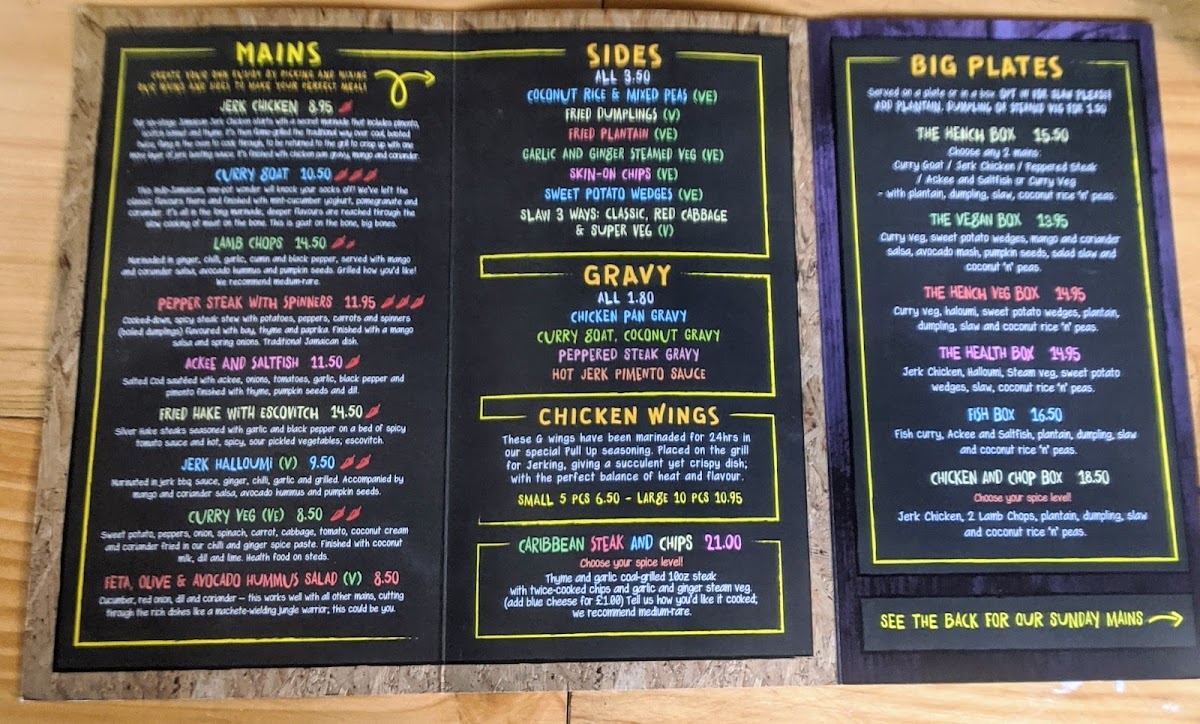 MAINS
CREATE YOUR OWN FUSION BY PICKING AND MIXING
OUR MAINS AND SIDES TO MAKE YOUR PERFECT MEAL!
JERK CHICKEN 8.95
Our six-stage Jamaican Jerk Chicken starts with a secret marinade that includes pimento,
scotch bonnet and thyme. It's then flame-grilled the traditional way over coal, basted
twice, flung in the oven to cook through, to be returned to the grill to crisp up with one
more layer of jerk basting sauce. It's finished with chicken pan gravy, mango and coriander.
CURRY GOAT 10.50
This Indo-Jamaican, one-pot wonder will knock your socks off! We've left the
classic flavours there and finished with mint-cucumber yoghurt, pomegranate and
coriander. It's all in the long marinade, deeper flavours are reached through the
slow cooking of meat on the bone. This is goat on the bone, big bones.
LAMB CHOPS 14.50
Marinaded in ginger, chilli, garlic, cumin and black pepper, served with mango
and coriander salsa, avocado hummus and pumpkin seeds. Grilled how you'd like!
We recommend medium-rare.
PEPPER STEAK WITH SPINNERS 11.95
Cooked-down, spicy steak stew with potatoes, peppers, carrots and spinners
(boiled dumplings) flavoured with bay, thyme and paprika. Finished with a mango
salsa and spring onions. Traditional Jamaican dish.
ACKEE AND SALTFISH 11.50
Salted Cod sautéed with ackee, onions, tomatoes, garlic, black pepper and
pimento finished with thyme, pumpkin seeds and dill.
FRIED HAKE WITH ESCOVITCH 14.50
Silver Hake steaks seasoned with garlic and black pepper on a bed of spicy
tomato sauce and hot, spicy, sour pickled vegetables; escovitch.
JERK HALLOUMI (V) 9.50
Marinated in jerk bbq sauce, ginger, chilli, garlic and grilled. Accompanied by
mango and coriander salsa, avocado hummus and pumpkin seeds.
CURRY VEG (VE) 8.50
Sweet potato, peppers, onion, spinach, carrot, cabbage, tomato, coconut cream
and coriander fried in our chilli and ginger spice paste. Finished with coconut
milk, dill and lime. Health food on steds.
FETA, OLIVE & AVOCADO HUMMUS SALAD (V) 8.50
Cucumber, red onion, dill and coriander – this works well with all other mains, cutting
through the rich dishes like a machete-wielding jungle warrior; this could be you.
SIDES
ALL 3.50
COCONUT RICE & MIXED PEAS (VE)
FRIED DUMPLINGS (V)
FRIED PLANTAIN (VE)
GARLIC AND GINGER STEAMED VEG (VE)
SKIN-ON CHIPS (VE)
SWEET POTATO WEDGES (VE)
SLAW 3 WAYS: CLASSIC, RED CABBAGE
& SUPER VEG (V)
GRAVY
ALL 1.80
CHICKEN PAN GRAVY
CURRY GOAT, COCONUT GRAVY
PEPPERED STEAK GRAVY
HOT JERK PIMENTO SAUCE
CHICKEN WINGS
These G wings have been marinaded for 24hrs in
our special Pull Up seasoning. Placed on the grill
for Jerking, giving a succulent yet crispy dish;
with the perfect balance of heat and flavour.
SMALL 5 PCS 6.50 – LARGE 10 PCS 10.95
CARIBBEAN STEAK AND CHIPS 21.00
Choose your spice level!
Thyme and garlic coal-grilled 10oz steak
with twice-cooked chips and garlic and ginger steam veg.
(add blue cheese for £1.00) Tell us how you'd like it cooked;
we recommend medium-rare.
BIG PLATES
Served on a plate or in a box OPT IN FOR SLAW PLEASE!
ADD PLANTAIN, DUMPLING OR STEAMED VEG FOR 1.50
THE HENCH BOX 15.50
Choose any 2 mains:
Curry Goat / Jerk Chicken / Peppered Steak
/ Ackee and Saltfish or Curry Veg
- with plantain, dumpling, slaw, coconut rice 'n' peas
THE VEGAN BOX 13.95
Curry veg, sweet potato wedges, mango and coriander
salsa, avocado mash, pumpkin seeds, salad slaw and
coconut 'n' peas.
THE HENCH VEG BOX 14.95
Curry veg, haloumi, sweet potato wedges, plantain,
dumpling, slaw and coconut rice 'n' peas.
THE HEALTH BOX 14.95
Jerk Chicken, Halloumi, Steam veg, sweet potato
wedges, slaw, coconut rice 'n' peas.
FISH BOX 16.50
Fish curry, Ackee and Saltfish, plantain, dumpling, slaw
and coconut rice 'n' peas.
CHICKEN AND CHOP BOX 18.50
Choose your spice level!
Jerk Chicken, 2 Lamb Chops, plantain, dumpling, slaw
and coconut rice 'n' peas.
SEE THE BACK FOR OUR SUNDAY MAINS